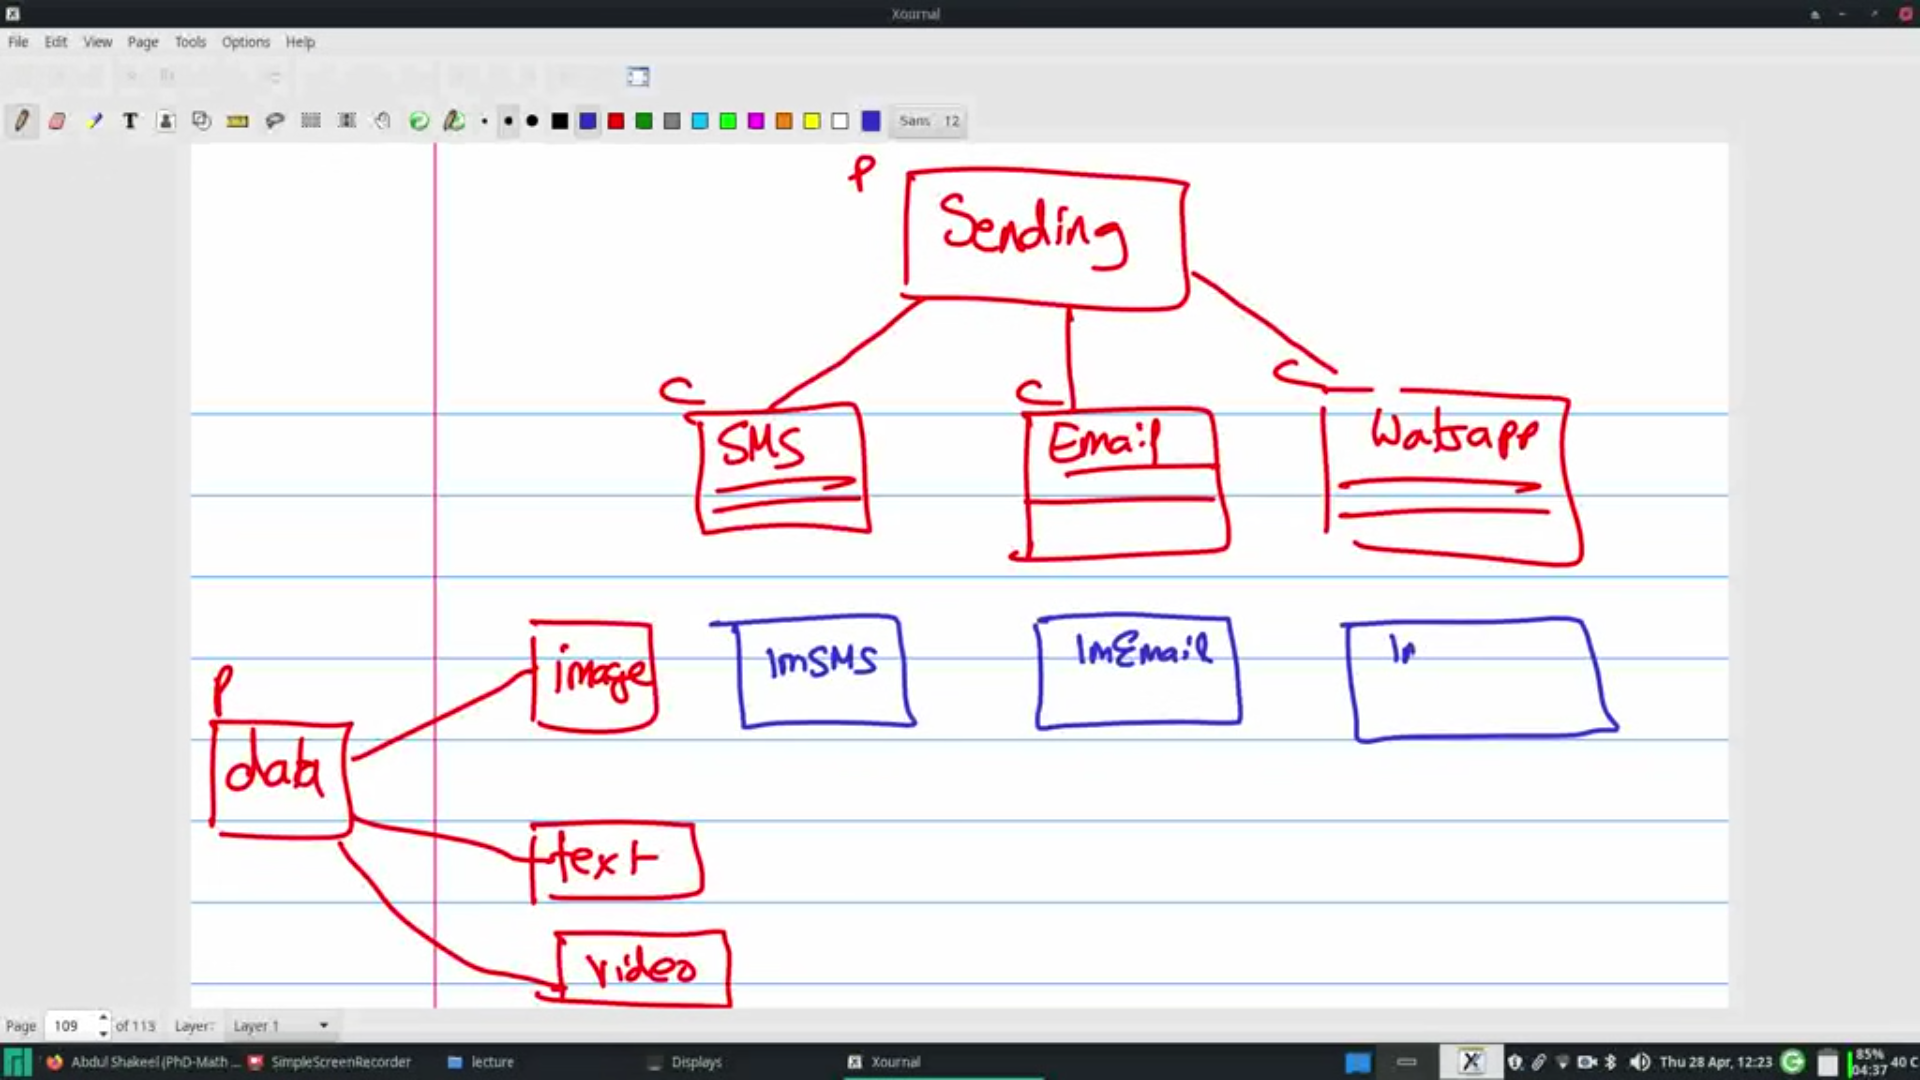 Xournal
File Edit View Page Tools Options Help
T Sans 12
P
Sending
C C C
SMS Email Watsapp
image ImSMS ImEmail Im
P
data
text
video
Page 109 of 113 Layer: Layer 1
Abdul Shakeel (PhD-Math ... SimpleScreenRecorder lecture Displays Xournal Thu 28 Apr, 12:23 85% 04:37 40 C